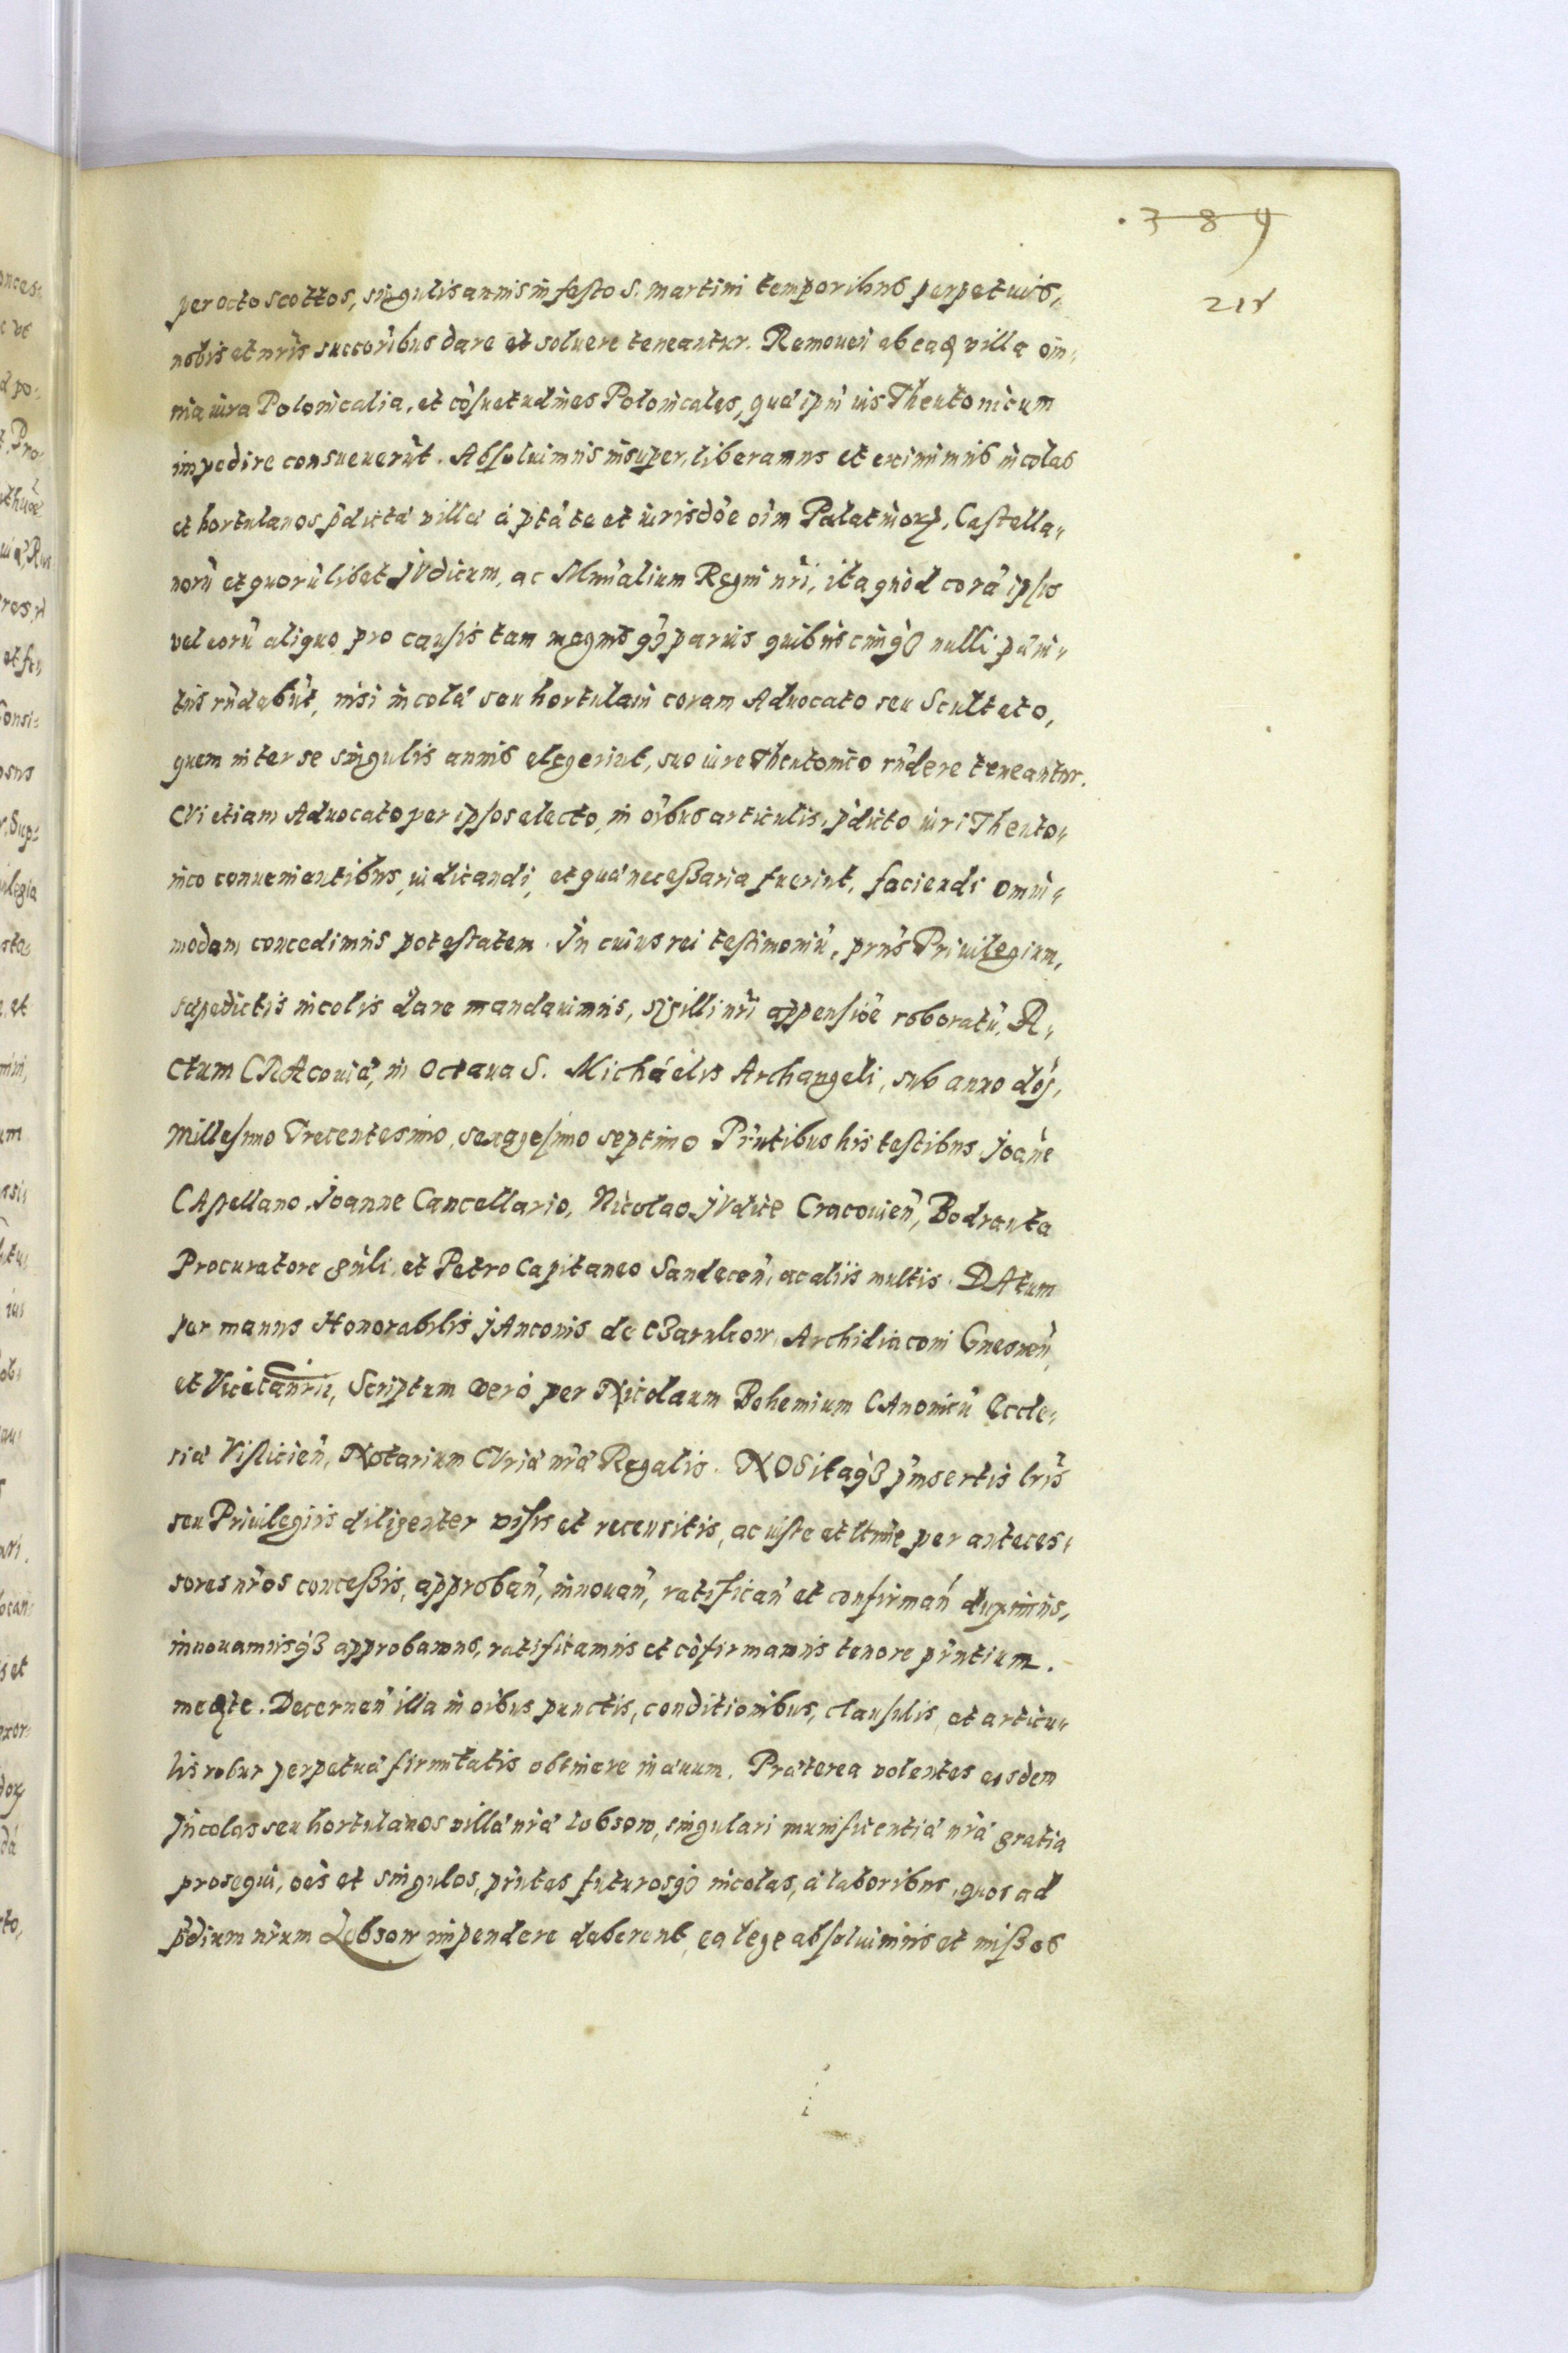 .389
215
per octo scottos, singulis annis in festo S. Martini temporibus perpetuis,
nobis et nr̃is succorĩbus dare et soluere teneantur. Remouen̄ ab eadē villa om̄-
nia iura Polonicalia, et cōsuetudines Polonicales, quæ ipm̄ ius Theutonicum
impedire consueuerūt. Absoluimus insuper, liberamus et eximimus incolas
et hortulanos p̄dictæ villæ à ptāte et iurisdōe oīm Palatinorꝝ, Castella-
norū et quorūlibet jVdicum, ac Mnr̄alium Regni nr̄i, ita quòd corā ipsis
vel eorū aliquo pro causis tam magnis qꝫ paruis quibuscunqꝫ nulli pœni-
tus rn̄debūt, nisi incolæ seu hortulani coram Aduocato seu Sculteto,
quem inter se singulis annis elegerint, suo iure Theutonico rn̄dere teneantur.
CVi etiam Aduocato per ipsos electo, in oībus articulis, p̄dicto iuri Theuto-
nico conuenientibus, iudicandi, et quæ necessaria fuerint, faciendi omni-
modam concedimus potestatem. In cuius rei testimoniū, prn̄s Priuilegium,
sæpedictis incolis dare mandauimus, sigilli nr̄i appensiōe roboratū. A-
ctum CRAcouiæ, in Octaua S. Michaëlis Archangeli, sub anno dōj,
Millesimo Trecentesimo, sexagesimo septimo Prn̄tibus his testibus, Joāne
CAstellano, Joanne Cancellario, Nicolao jVdice Cracouien̄, Bodzanta
Procuratore gn̄li, et Petro Capitaneo Sandecen̄, ac aliis multis. DAtum
per manus Honorabilis jAnconis de CZarnkow, Archidiaconi Gnesnen̄,
et Vicecan̄rii, Scriptum verò per Nicolaum Bohemium CAnonicū Eccle-
siæ Visliciēn, Notarium CVriæ nr̄æ Regalis. NOS itaqꝫ p̄insertis lr̄is
seu Priuilegiis diligenter visis et recensitis, ac iuste et ltīme per anteces-
sores nr̄os concessis, approban̄, innouan̄, ratifican̄ et confirman̄ duximus,
innouamusqꝫ approbamus, ratificamus et cōfirmamus tenore prn̄tium.
mediāte. Decernen̄ illa in oībus punctis, conditionibus, clausulis, et articu-
lis robur perpetuæ firmitatis obtinere in æuum. Præterea volentes eosdem
Jncolas seu hortulanos villæ nr̄æ Lobsow, singulari munificentiæ nr̄æ gratia
prosequi, oēs et singulos, prn̄tes futurosqꝫ incolas, à laboribus, quos ad
p̄dium nr̄um Lobsow impendere deberent, ea lege absoluimus et missos